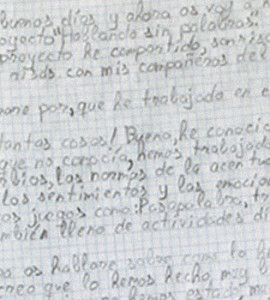 buenos días y ahora os voy a
oyecto "Hablando sin palabras".
proyecto he compartido, sonrisa
nisas con mis compañeros del
one por, que he trabajado en e
tantas cosas! Bueno, he conoci
que no conocía, hemos trabajad
bios, las normas de la acen
los sentimientos y las emocio
os juegos como: Pasapalabra,
mbién lleno de actividades di
os hablare sobre como lo
creo que lo hemos hecho muy b
hemos estado mu